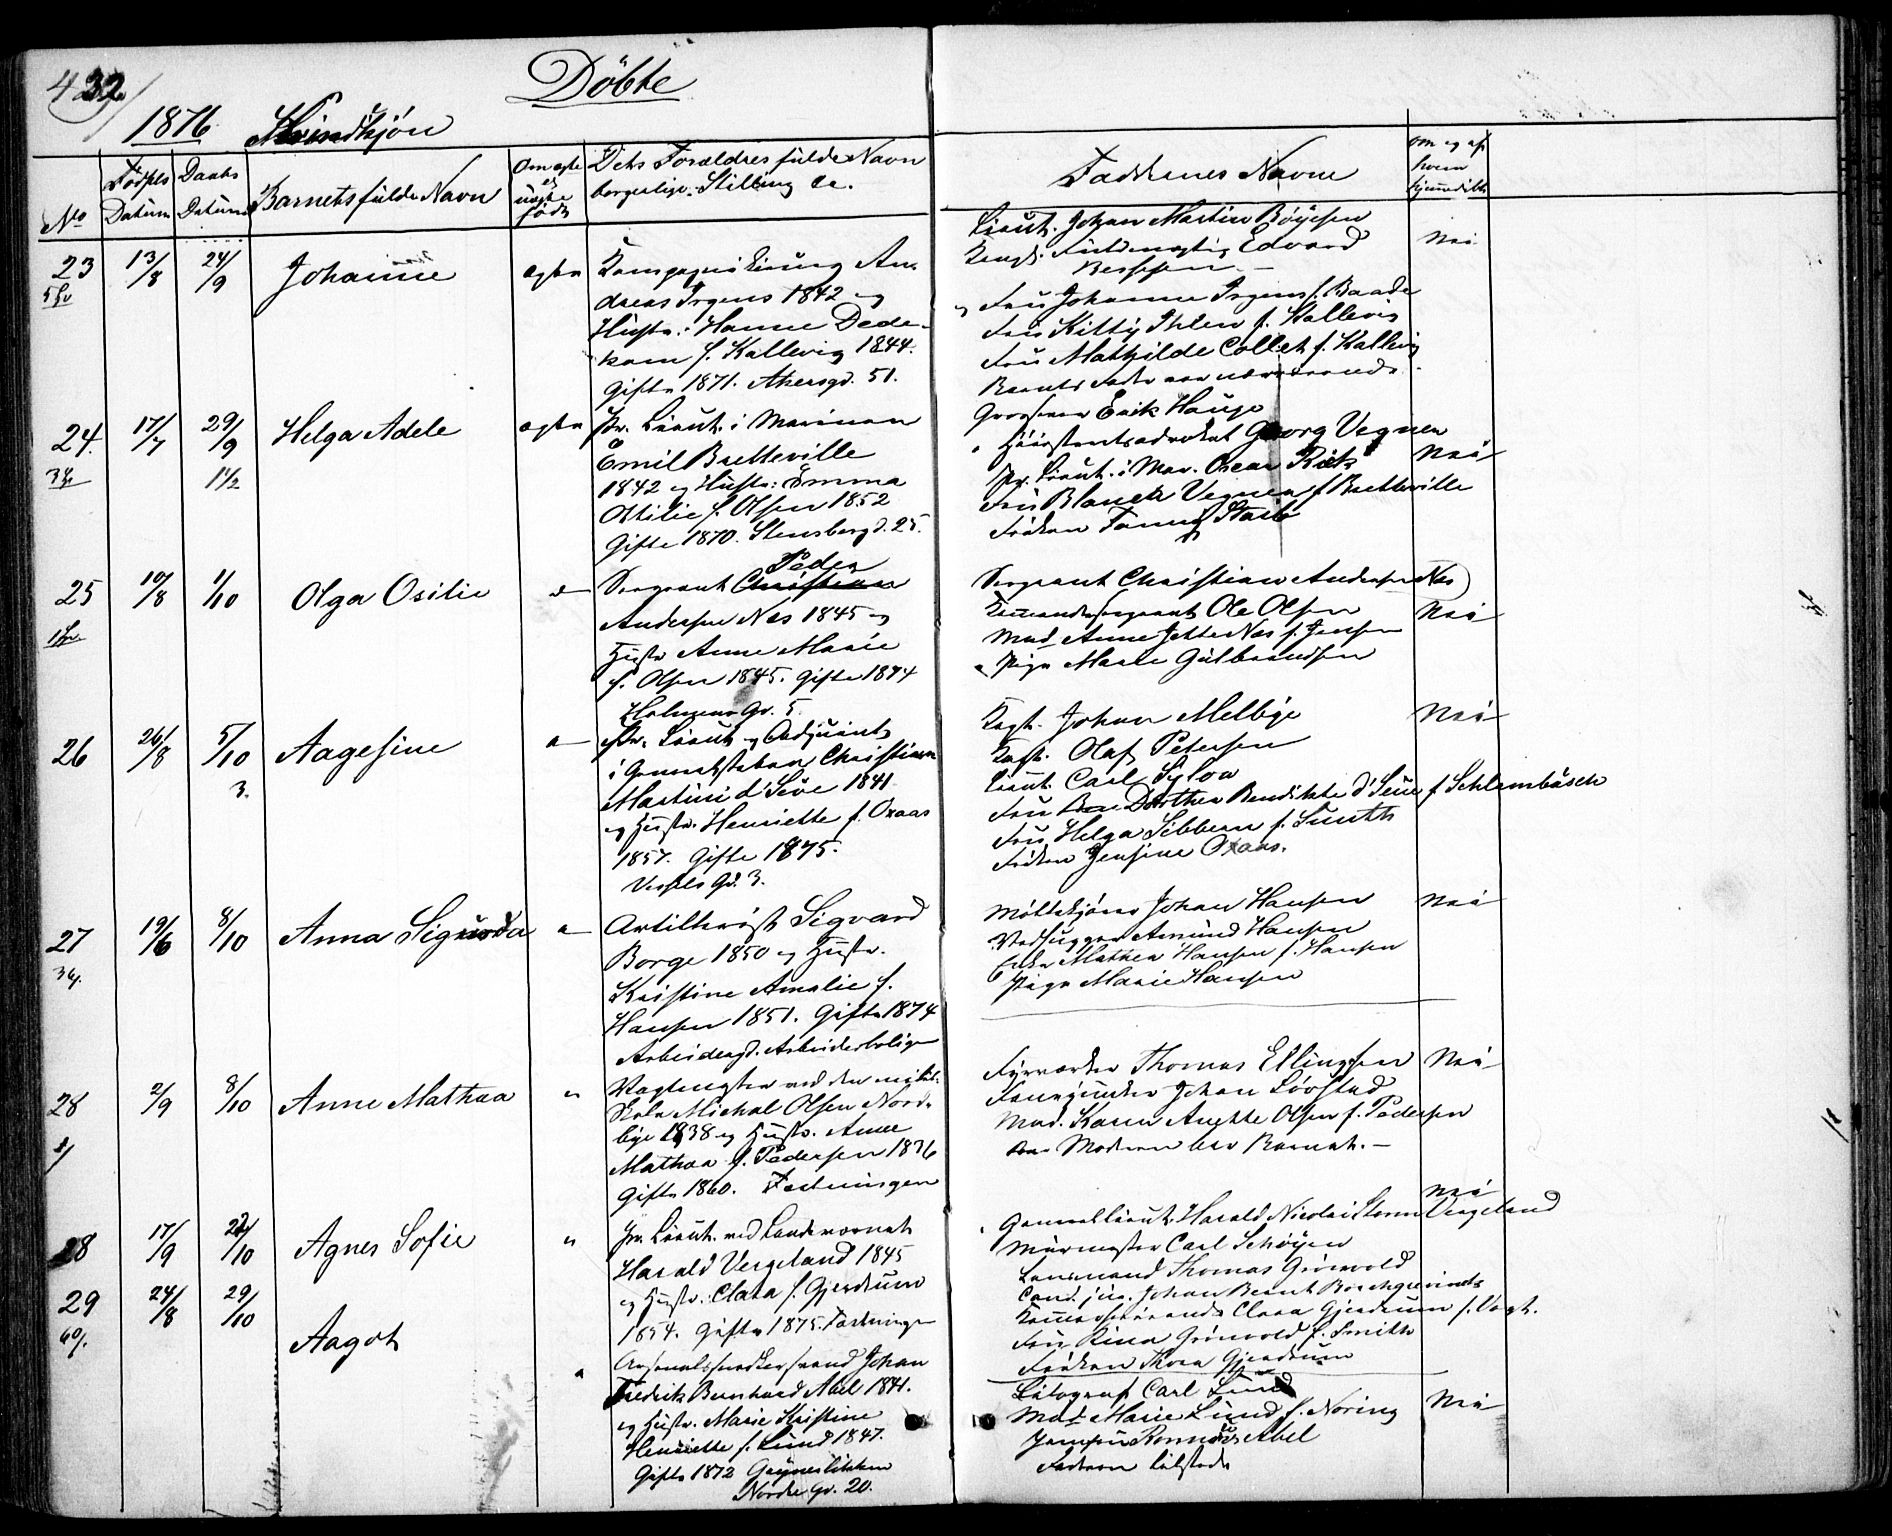 432
Döbte
1876 Kvindkjön
No
Födsels Datum
Daabs Datum
Barnets fulde Navn
Om ægte eller uægte födt
Dets Forældres fulde Navn
borgerlige Stilling &c.
Faddernes Navne
Om og af hvem hjemmedöbt
23 13/8 24/9 Johanne ægte
Kompagnikirurg An-
dreas Irgens 1842 og
Hustr. Hanne Dede-
kam f. Kallevig 1844.
Gifte 1871. Akersgd. 51.
Lieut. Johan Martin Böyesen
Fuldmægtig Edvard
Fru Johanne Irgens f. Baade
Fru Kitty Ihlen f. Kallevig
Fru Mathilde Collet f. Kallevig
Barnets Fader var nærværende.
Nei
24. 17/7 29/9 Helga Adele ægte
Pr. Lieut. i Marinen
Emil Bretteville
1842 og Hustr. Emma
Ottilie f. Olsen 1852
Gifte 1870. Stensbergd. 25.
Grosserer Erik Hauge
Höiesteretsadvokat Georg Vegner
Pr. Lieut. i Mar. Oscar
Fru Blanch Vegner f. Bretteville
Fröken Fanny
Nei
25 10/8 1/10 Olga Osilie
Peder
Sergeant Christian
Andersen Næs 1845 og
Hustr Anne Marie
f. Olsen 1845. Gifte 1874
Holmens Gd. 5.
Sergeant Christian Andersen Næs
Kommandersergeant Ole Olsen
Mad. Anne Jette Næs f. Jensen
Pige Marie Gulbrandsen
Nei
26 26/8 5/10 Aagesine
3.
Pr. Lieut og Adjutant
i Generalstaben Christian
Martini d'Seve 1841
og Hustr. Henriette f. Oxaas
1857. Gifte 1875.
Vessels Gd. 3.
Kapt. Johan Melbye
Kapt. Olaf Petersen
Lieut. Carl Sylow
Fru Dorthea Bendikte d'Seue f Schlambusch
Fru Helga Sibbern f. Smith
Fröken Jensine Oxaas.
Nei
27 19/6 8/10 Anna Sigurda
Artillerist Sigvard
Borge 1850 og Hustr.
Kristine Amalie f.
Hansen 1851. Gifte 1874
Arbeidergd. Arbeiderbolige
Johan Hansen
Vedhugger Amund Hansen
Enke Mathea Hansen f. Hansen
Pige Marie Hansen
Nei
28 2/9 8/10 Anne Mathea
Vagtmester ved den milit.
Skole Michal Olsen Nord-
bye 1838 og Hustr. Anne
Mathea f. Pedersen 1836
Gifte 1860. Fæstningen
Fyrværker Thomas Ellingsen
Fanejunker Johan Lövstad
Mad. Karen Anette Olsen f. Pedersen
Moderen bar Barnet.
Nei
28 17/9 22/10 Agnes Sofie
Pr. Lieut. ved Landeværnet
Harald Vergeland 1845
og Hustr. Clara f. Gjerdrum
1854. Gifte 1875. Fæstninge
Generallieut. Harald Nicolai Storm Vergeland
Murmester Carl Schöyen
Lensmand Thomas Grönvold
Cand. jur. Johan Bernt Borchgrevink
Clara Gjerdrum f. Vogt.
Fru Rina Grönvold f. Smith
Fröken Thora Gjerdrum
Nei
29 24/8 29/10 Aagot
Johan
Fredrik Bernhard Abel 1841.
og Hustr. Marie Kristine
Henriette f. Lund 1847.
Gifte 1872 Grünerlökken
Nordre Gd. 20.
Litograf Carl Lund
Mad. Marie Lund f. Noring
Jomfru Abel
Faderen tilstede
Nei